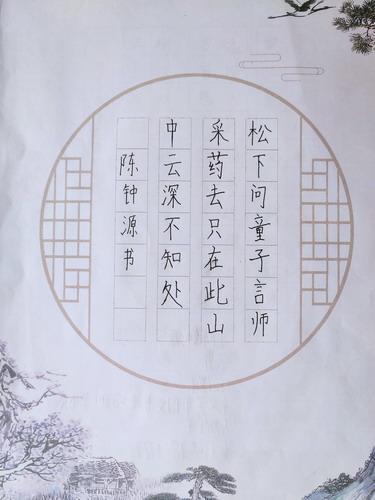 松下问童子言师
采药去只在此山
中云深不知处
陈钟源书